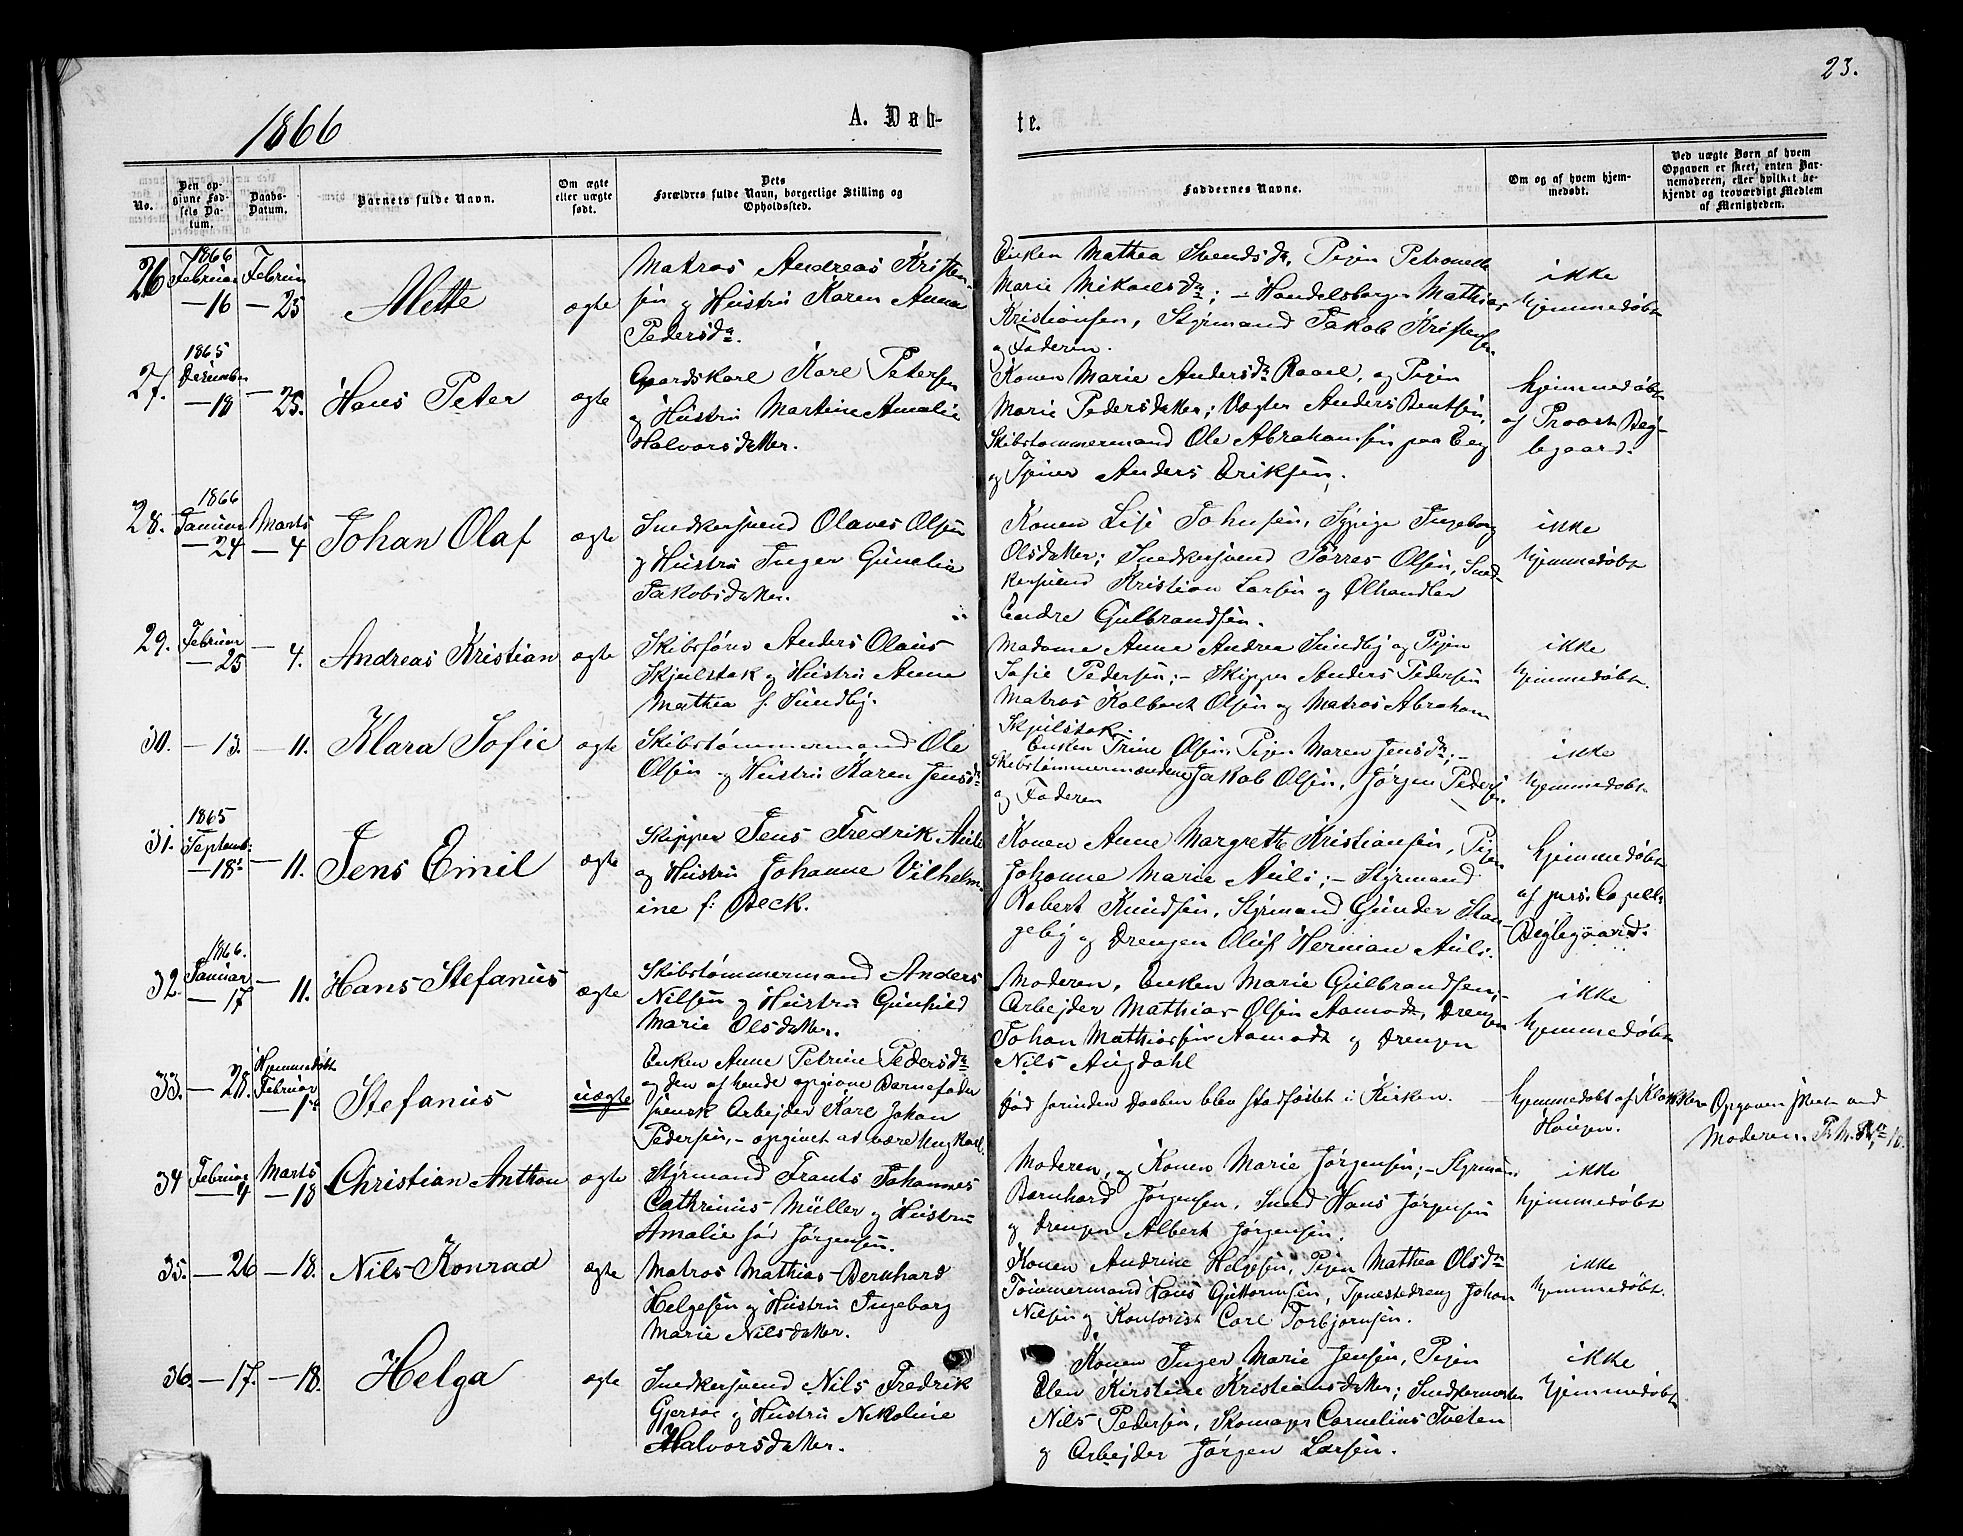 23.
1866
A. Døb-
te.
No.
Den op-
givne Fød-
sels Da-
tum.
Daabs-
Datum.
Barnets fulde Navn.
Om ægte
eller uægte
født.
Dets
Forældres fulde Navn, borgerlige Stilling og
Opholdssted.
Faddernes Navne.
Om og af hvem hjem-
medøbt.
Ved uægte Børn af hvem
Opgaven er skeet, enten Bar-
nemoderen, eller hvilket be-
kjendt og troværdigt Medlem
af Menigheden.
26
1866
Februar
—16
Februar
—25
Mette
ægte
Matros Andreas Kristen-
sen og Hustru Karen Anna
Pedersda.
Enken Mathea Svendsda, Pigen Petronelle
Marie Mikaelsda; — Handelsborger Mathias
Kristiansen, Styrmand Jakob Kristensen
og Faderen.
ikke
hjemmedøbt
27.
1865
December
—18
— 25.
Hans Peter
ægte
Gaardskarl Karl Petersen
og Hustru Martine Amalie
Halvorsdatter.
Konen Marie Andersda Raael, og Pigen
Marie Pedersdatter; Vægter Anders Bentsen,
Skibstømmermand Ole Abrahamsen paa Eeg
og Tjener Anders Eriksen.
hjemmedøbt
af Provst Beg-
legaard.
28.
1866
Januar
—24
Marts
— 4
Johan Olaf
ægte
Snedkersvend Olaves Olsen
og Hustru Inger Gunelie
Jakobsdatter.
Konen Lise Johnsen, Sypige Ingeborg
Olsdatter; Snedkersvend Tørres Olsen, Sned-
kersvend Kristian Larsen og Ølhandler
Endre Gulbrandsen.
ikke
hjemmedøbt
29.
Februar
—25
— 4.
Andreas Kristian
ægte
Skibsfører Anders Olaus
Skjelstak og Hustru Anne
Mathea f. Sundby.
Madame Anne Andrea Sundby og Pigen
Sofie Pedersen; — Skipper Anders Pedersen
Matros Kolbert Olsen og Matros Abraham
Skjelstak
ikke
hjemmedøbt.
30.
— 13.
— 11.
Klara Sofie
ægte
Skibstømmermand Ole
Olsen og Hustru Karen Jensda
Enken Trine Olsen, Pigen Maren Jensda; —
Skibstømmermændene Jakob Olsen, Jørgen Pedersen
og Faderen
ikke
hjemmedøbt
31.
1865
Septemb:
—18.
— 11.
Jens Emil
ægte
Skipper Jens Fredrik Auli
og Hustru Johanne Vilhelm-
ine f: Beck.
Konen Anne Margrethe Kristiansen, Pigen
Johanne Marie Auli; — Styrmand
Robert Knudsen, Styrmand Gunder Stan-
geby og Drengen Oluf Herman Auli.
hjemmedøbt
af pers. Capell:
Beglegaard.
32.
1866.
Januar
— 17
— 11.
Hans Stefanus
ægte
Skibstømmermand Anders
Nilsen og Hustru Gunhild
Marie Olsdatter.
Moderen, Enken Marie Gulbrandsen, —
Arbejder Mathias Olsen Aamodt, Drengen
Johan Mathiassen Aamodt og Drengen
Nils Augdahl
ikke
hjemmedøbt
33.
— 28.
Hjemmedøbt
Februar
— 1ste
Stefanus
uægte
Enken Anne Petrine Pedersda
og den af hende opgivne Barnefader
svensk Arbejder Karl Johan
Pedersen, — opgivet at være Ungkarl.
Død forinden Daaben blev stadfæstet i Kirken.
hjemmedøbt af Klokker
Haugen.
Opgaven skeet ved
Moderen.
34
Februar
— 4
Marts
— 18
Christian Anthon
ægte
Styrmand Frants Johannes
Cathrinus Müller og Hustru
Amalie fød Jørgensen.
Moderen, og Konen Marie Jørgensen; — Styrmand
Bernhard Jørgensen, Smed Hans Jørgensen
og Drengen Albert Jørgensen.
ikke
hjemmedøbt
35.
— 26
— 18.
Nils Konrad
ægte
Matros Mathias Bernhard
Helgesen og Hustru Ingeborg
Marie Nilsdatter.
Konen Andrine Helgesen, Pigen Mathea Olsda
Tømmermand Hans Guttormsen, Tjenestedreng Johan
Nilsen og Kontorist Carl Torbjørnsen.
ikke
hjemmedøbt.
36.
— 17.
— 18.
Helga
ægte
Snedkersvend Nils Fredrik
Gjersøe og Hustru Nikoline
Halvorsdatter.
Konen Inger Marie Jensen, Pigen
Elen Kirstine Kristiansdatter; Snedkermester
Nils Pedersen, Skomager Cornelius Tveten
og Arbejder Jørgen Larsen.
ikke
hjemmedøbt